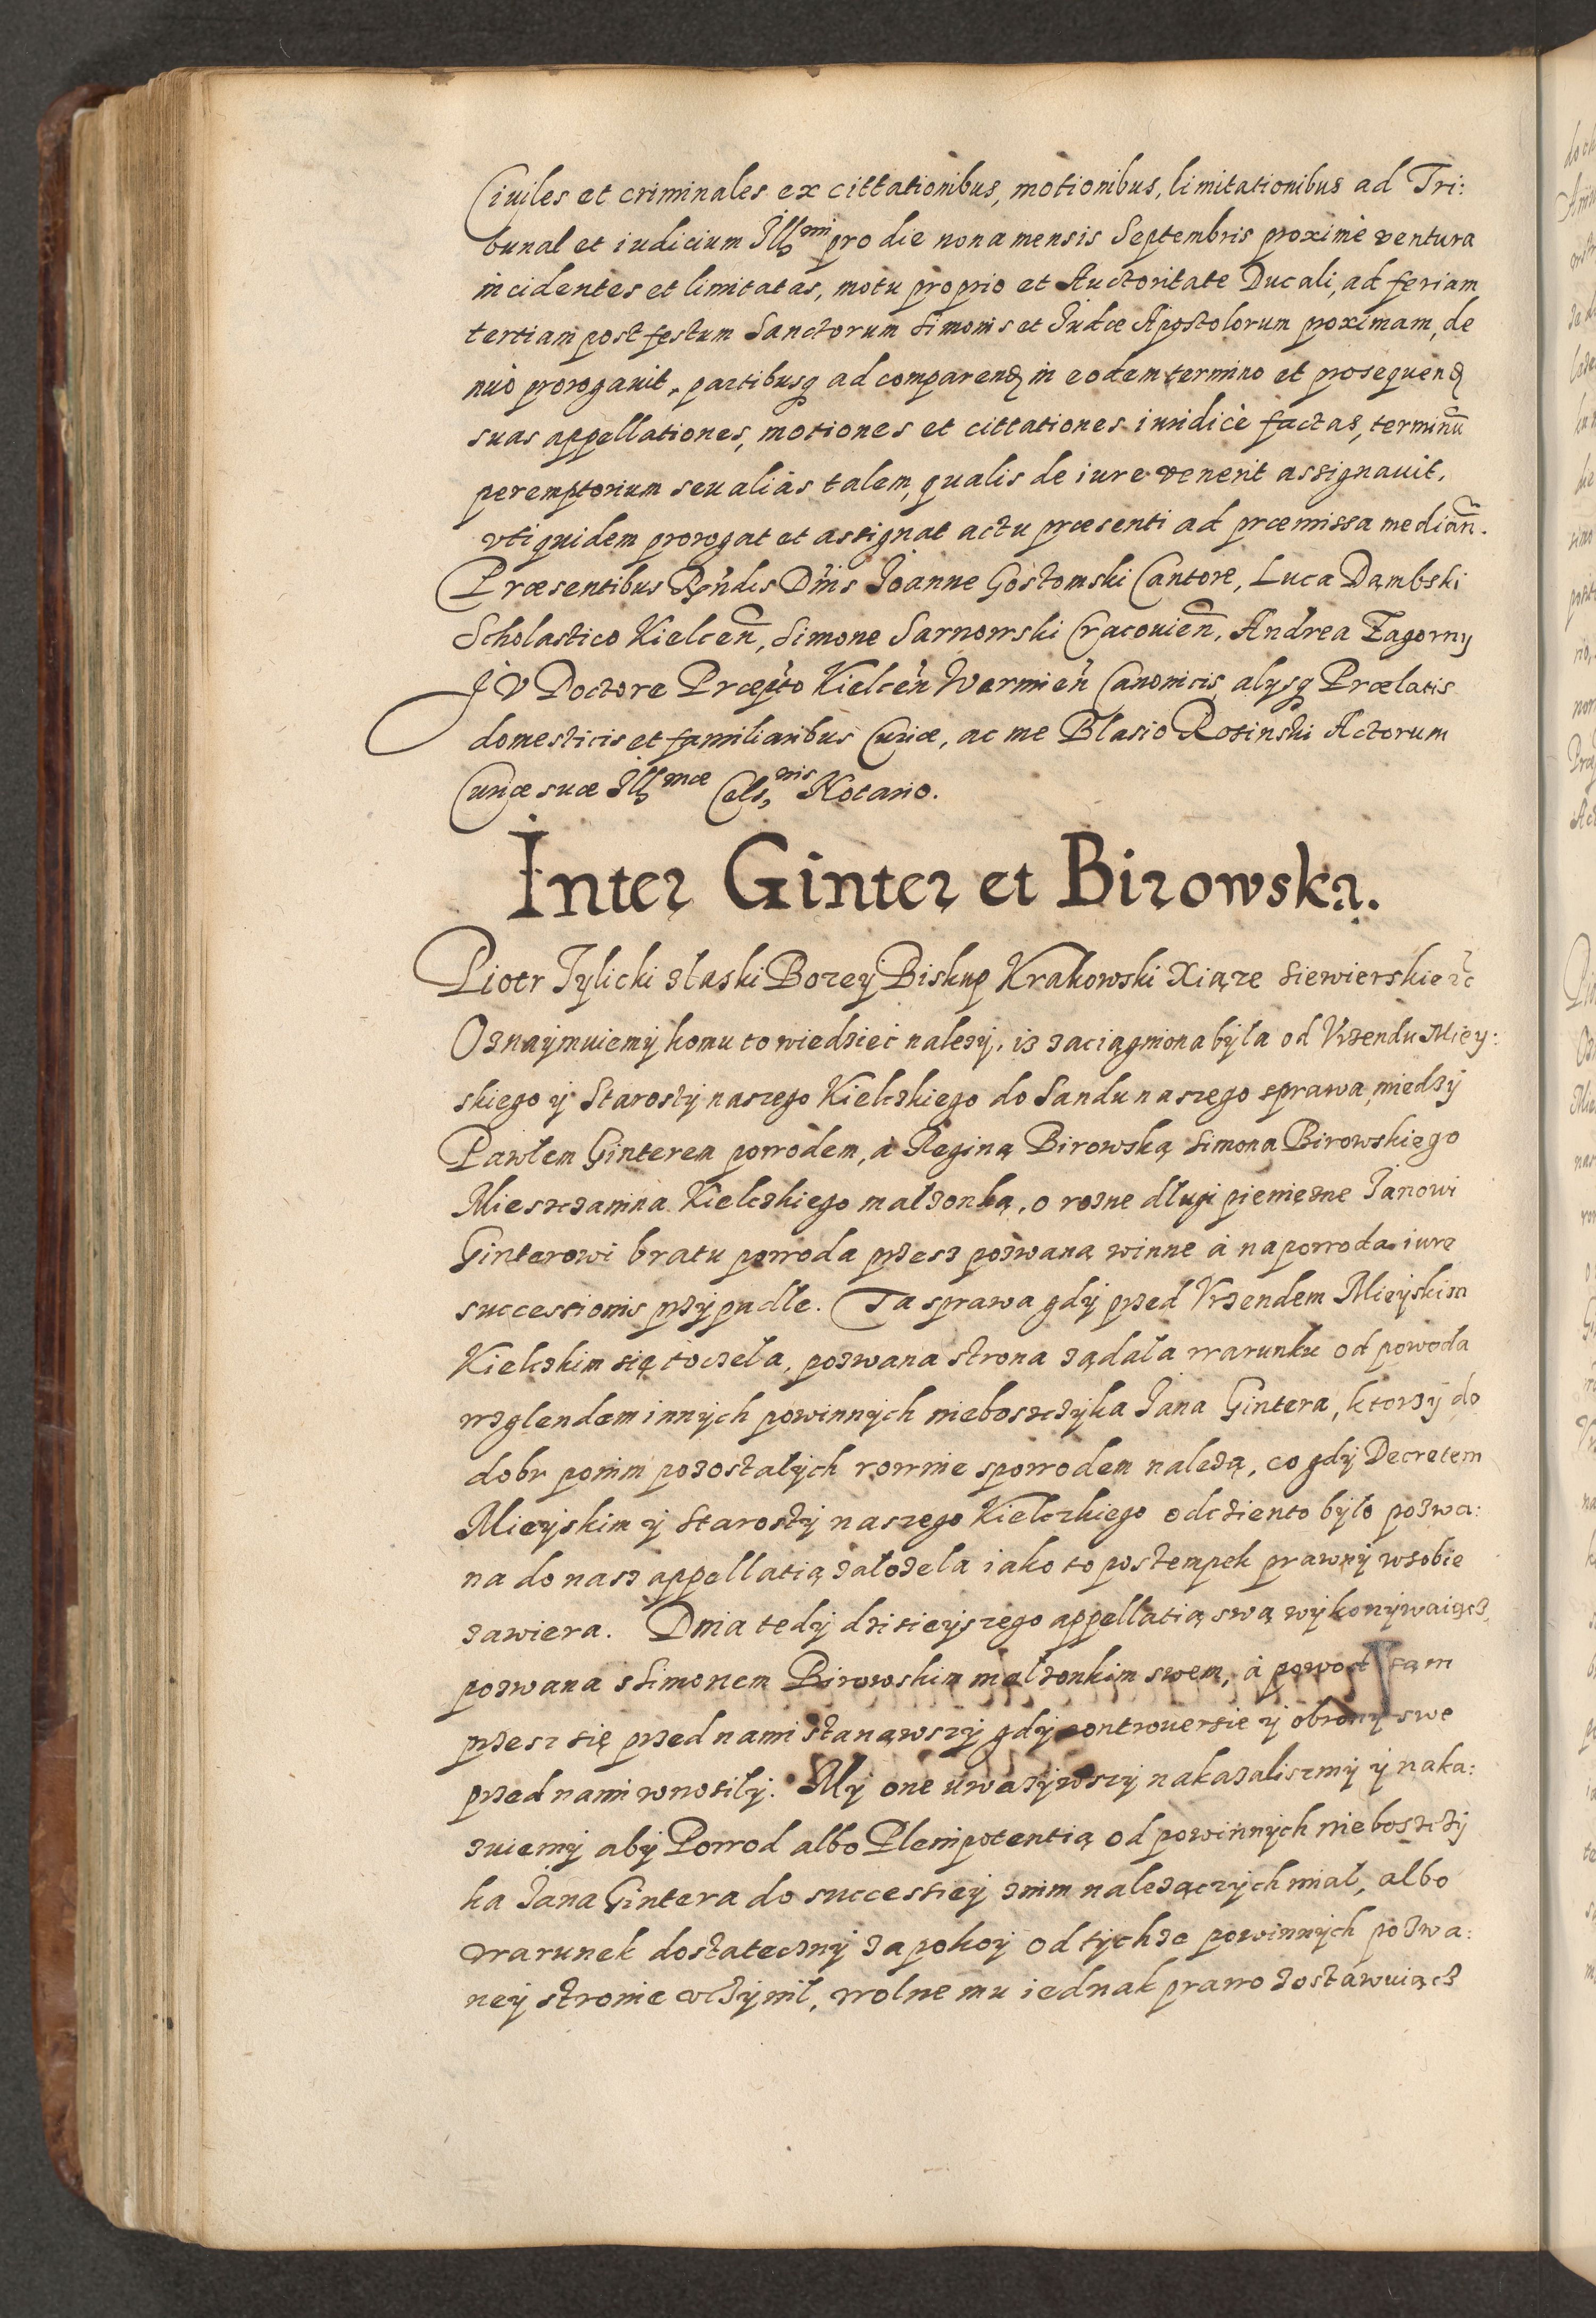 Ciuiles et criminales ex cittationibus, motionibus, limitationibus ad Tri:
bunal et iudicium Illmi pro die nona mensis Septembris proximè ventura
incidentes et limitatas, motu proprio et Auctoritate Ducali, ad feriam
tertiam post festum Sanctorum Simonis et Judæ Apostolorum proximam, de
nuò prorogauit, partibusq ad comparend in eodem termino et prosequend
suas appellationes, motiones et cittationes iuridicè factas, terminū
peremptorium seu aliàs talem, qualis de iure venerit assignauit,
vti quidem prorogat et assignat actu præsenti ad præmissa median̄.
Præsentibus Rn̄dis Dn̄is Joanne Gostomski Cantore, Luca Dąmbski
Scholastico Kielcen̄, Simone Sarnowski Cracouien̄, Andrea Zagorny
J V Doctore Præp̄to Kielcen̄ Warmien̄ Canonicis, alysq Prælatis
domesticis et familiaribus Curiæ, ac me Blasio Rosinski Actorum
Curiæ suæ Illmæ Celsnis Notario.
Inter Ginter et Birowską.
Piotr Tylicki z łaski Bozey Biskup Krakowski Xiąze Siewierskie ꝛc
Oznaÿmuiemÿ komu to wiedzieć nalezÿ, iz zaciągniona bÿla od Vrzendu Miey:
skiego ÿ Starostÿ naszego Kielczkiego do Sandu naszego sprawa, miedzÿ
Pawłem Ginterem powodem, a Reginą Birowską Simona Birowskiego
Mieszczanina Kielczkiego małzonką, o rozne długi pieniezne Janowi
Ginterowi bratu powoda przesz pozwaną winne à na powoda iure
successionis przÿpadłe. Ta sprawa gdÿ przed Vrzendem Mieÿskim
Kielczkim się toczeła, pozwana strona ządała warunku od powoda
wzglendem innÿch powinnÿch nieboszczÿka Jana Gintera, ktorzÿ do
dobr ponim pozostałÿch rownie spowodem nalezą, co gdÿ Decretem
Mieÿskim ÿ Starostÿ naszego Kielczkiego odcziento bÿło pozwa:
na do nasz appellatią załozela iako to postempek prawnÿ w sobie
zawiera. Dnia tedÿ dzisieÿszego appellatią swą wÿkonÿwaiącz,
pozwana s Simonem Birowskim małzonkim swem, à powod sam
przesz się przed nami stanąwszÿ gdÿ controuersie ÿ obronÿ swe
przed nami wnosilÿ. Mÿ one uwazÿwszÿ nakazaliszmÿ ÿ naka:
zuiemÿ abÿ Powod albo Plenipotentią od powinnÿch nieboszczÿ
ka Jana Gintera do successieÿ znim nalezączÿch miał, albo
warunek dostatecznÿ za pokoÿ od tÿchze powinnÿch pozwa:
neÿ stronie vczÿnił, wolne mu iednak prawo zostawuiącz